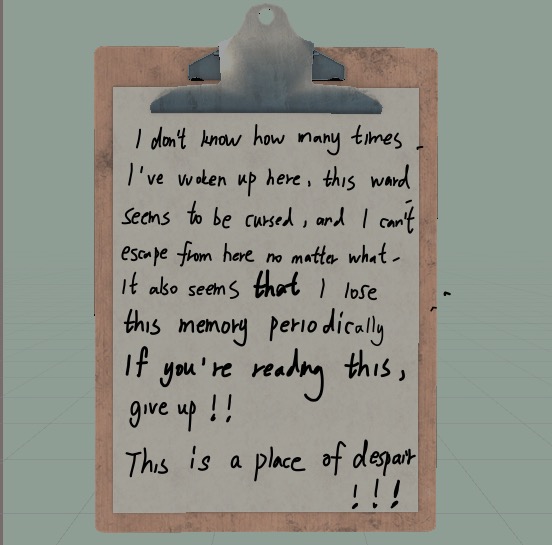 I don't know how many times
I've woken up here, this ward
seems to be cursed, and I can't
escape from here no matter what-
It also seems that I lose
this memory periodically
If you're reading this,
give up !!
This is a place of despair
!!!